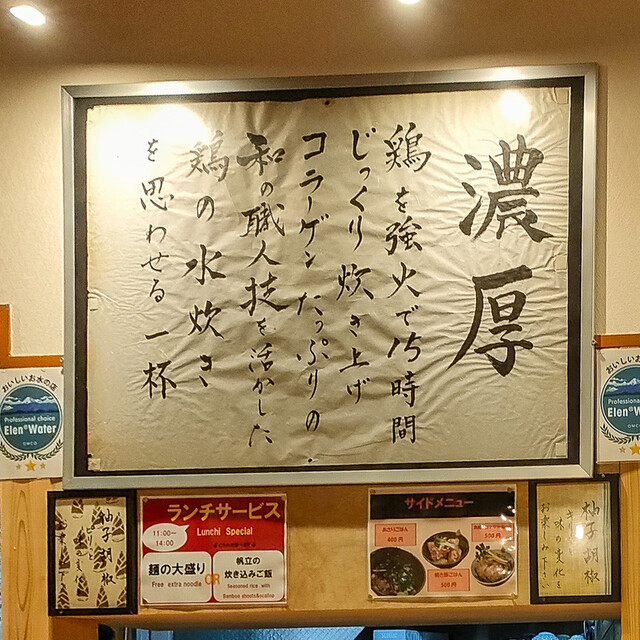 濃厚
鶏を強火で15時間
じっくり炊き上げ
コラーゲンたっぷりの
和の職人技を活かした
鶏の水炊き
を思わせる一杯
おいしいお水の店
Professional choice
Elen Water
OMCO
おいしいお水の店
Professional
Elen Water
OMCO
柚子胡椒
ランチサービス
Lunchi Special
11:00〜
14:00
麺の大盛り
Free extra noodle
OR
帆立の
炊き込みご飯
Seasoned rice with
Bamboo shoots&scallop
サイドメニュー
400円
500円
500円
柚子胡椒
味の変化を
お楽しみ下さい